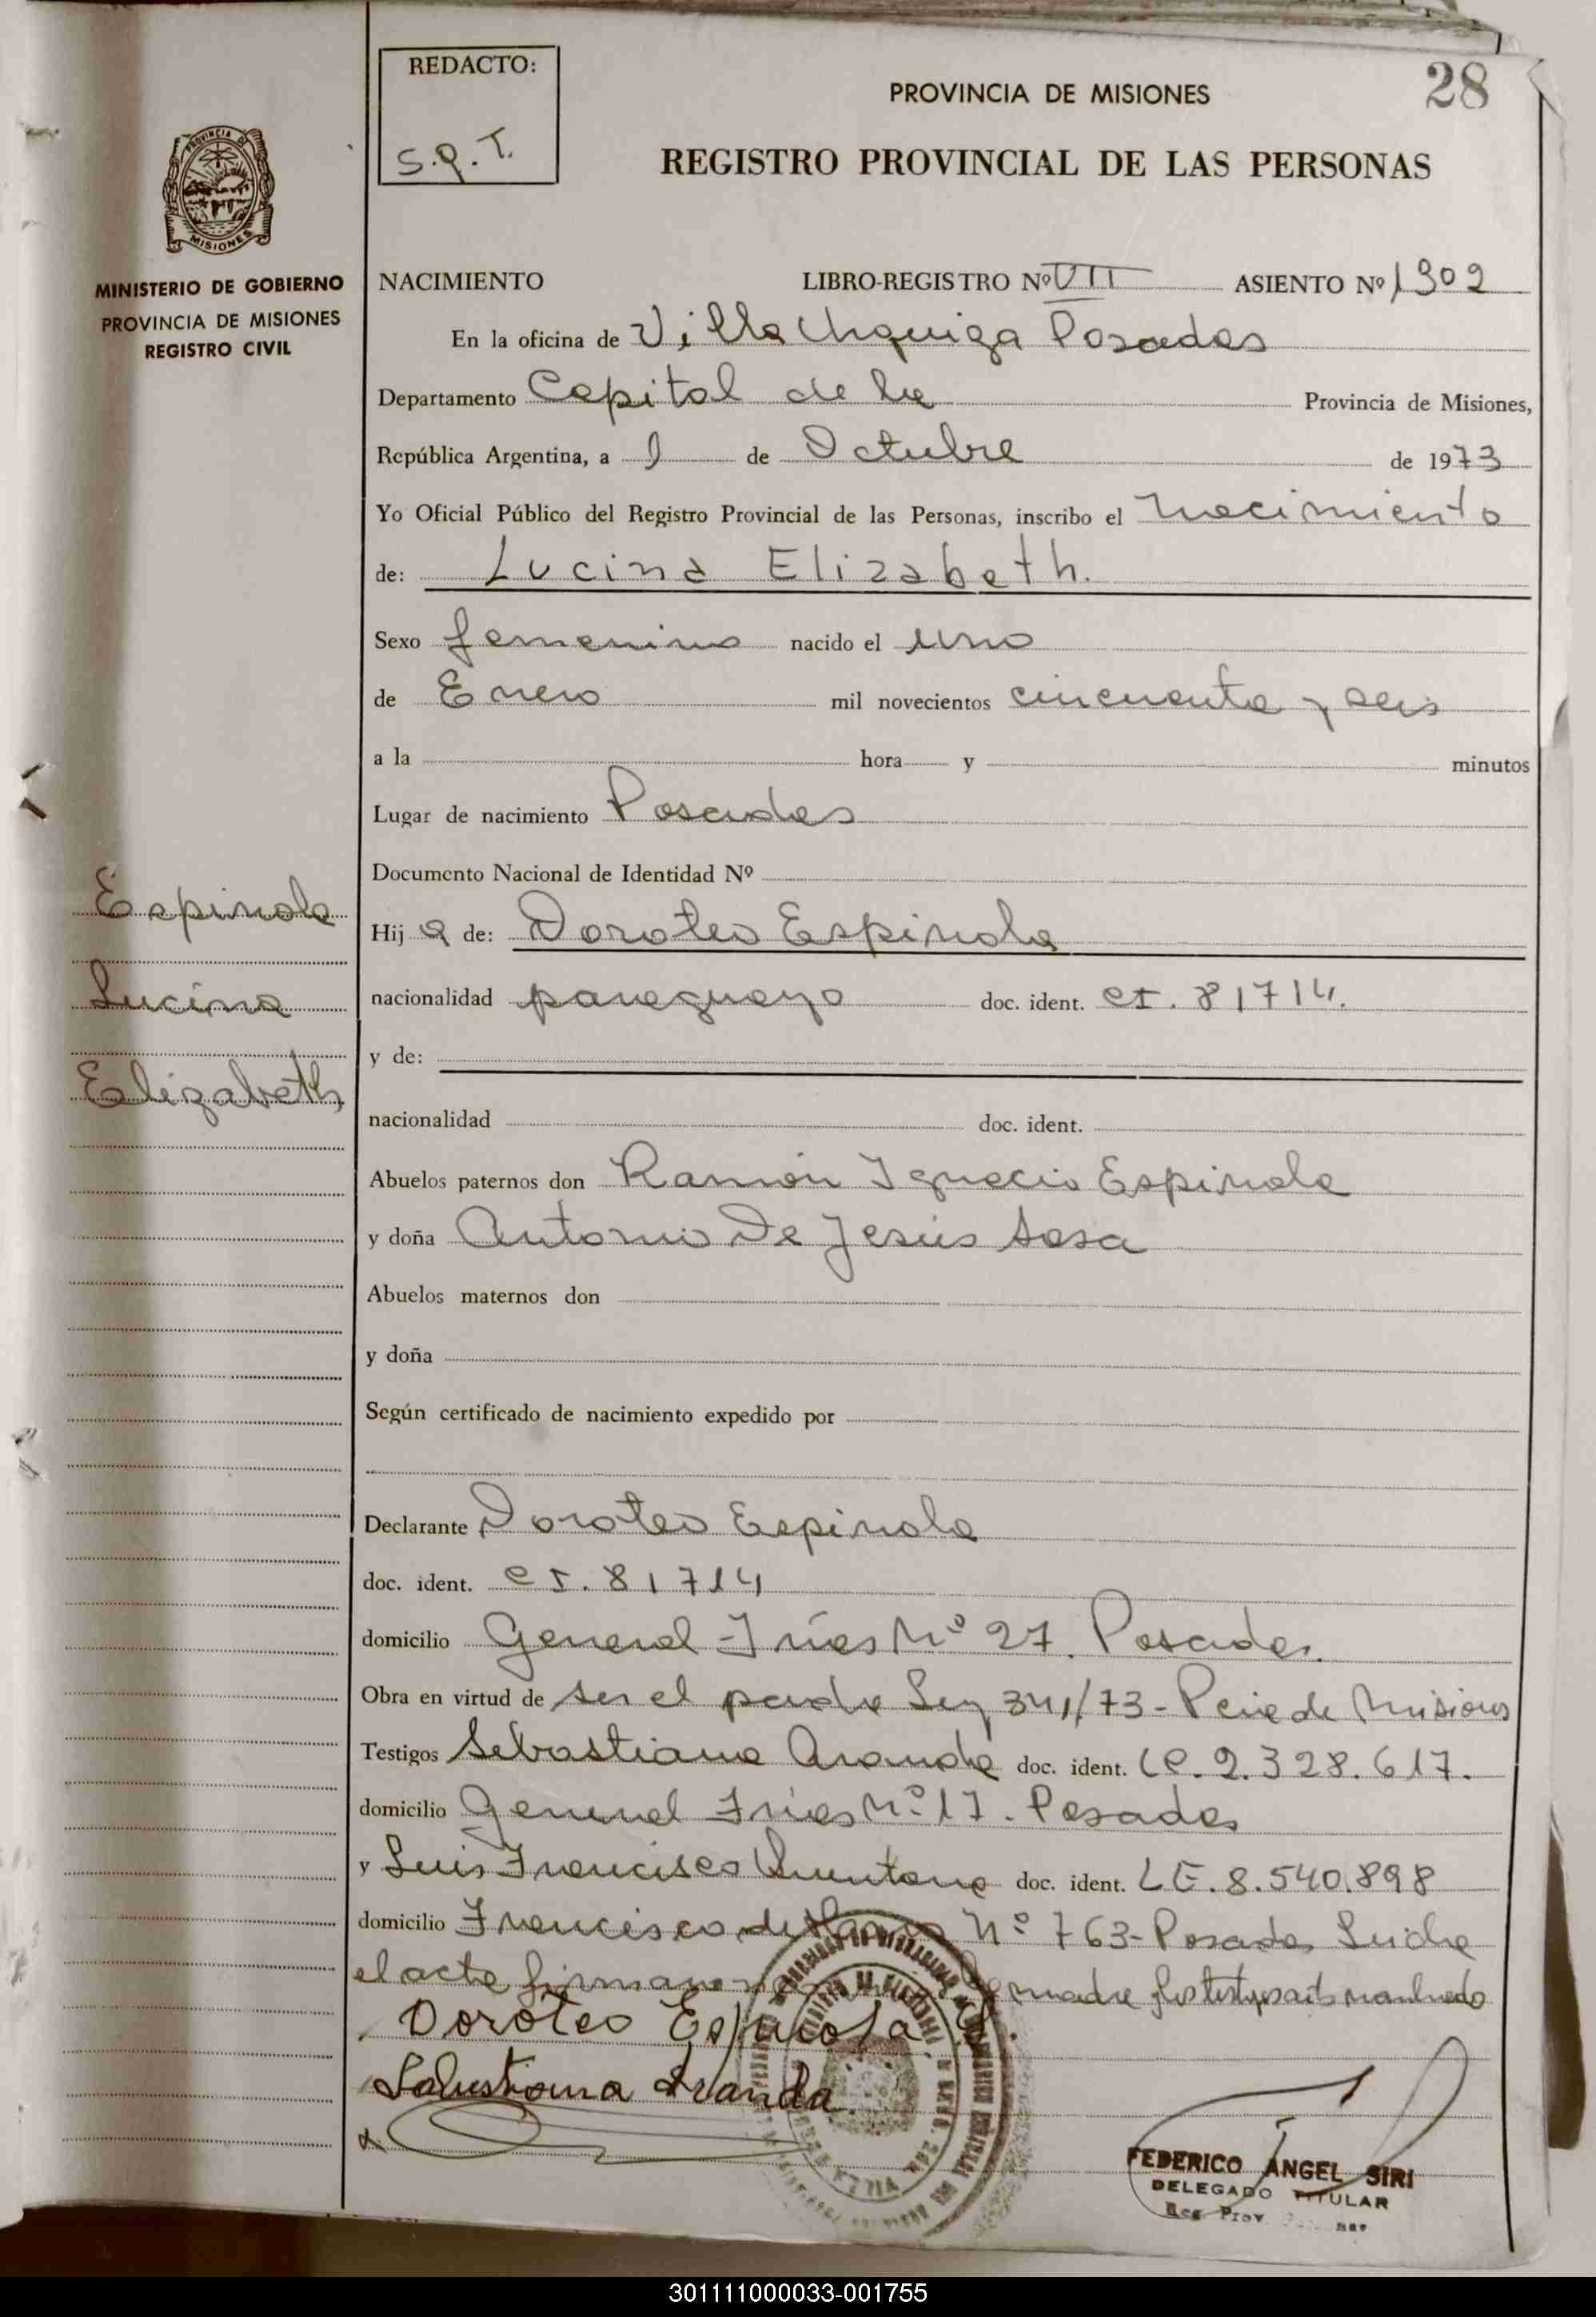 REDACTO:
S.Q.T.
28
PROVINCIA DE MISIONES
REGISTRO PROVINCIAL DE LAS PERSONAS
PROVINCIA DE
MISIONES
MINISTERIO DE GOBIERNO
PROVINCIA DE MISIONES
REGISTRO CIVIL
NACIMIENTO LIBRO-REGISTRO Nº VII ASIENTO Nº 1302
En la oficina de Villa Urquiza Posadas
Departamento Capital de la Provincia de Misiones,
República Argentina, a 1 de Octubre de 1973
Yo Oficial Público del Registro Provincial de las Personas, inscribo el nacimiento
de: Lucina Elizabeth.
Sexo femenino nacido el uno
de Enero mil novecientos cincuenta y seis
a la hora y minutos
Lugar de nacimiento Posadas
Documento Nacional de Identidad Nº
Espinola
Lucina
Elizabeth
Hij a de: Doroteo Espinola
nacionalidad paraguayo doc. ident. CI. 81714.
y de:
nacionalidad doc. ident.
Abuelos paternos don Ramón Ignacio Espinola
y doña Antonia De Jesús Sosa
Abuelos maternos don
y doña
Según certificado de nacimiento expedido por
Declarante Doroteo Espinola
doc. ident. CI. 81714
domicilio General Frías Nº 27. Posadas.
Obra en virtud de ser el padre Ley 341/73 - Pcia de Misiones
Testigos Sebastiana Aranda doc. ident. LC. 2.328.617.
domicilio General Frías Nº 17. Posadas
y Luis Francisco Quintana doc. ident. LE. 8.540.898
domicilio Francisco de Nº 763 - Posadas Leída
el acta firman madre y los testigos
Doroteo Espinola
Salustiana Aranda
FEDERICO ÁNGEL SIRI
DELEGADO TITULAR
Reg. Prov.
301111000033-001755